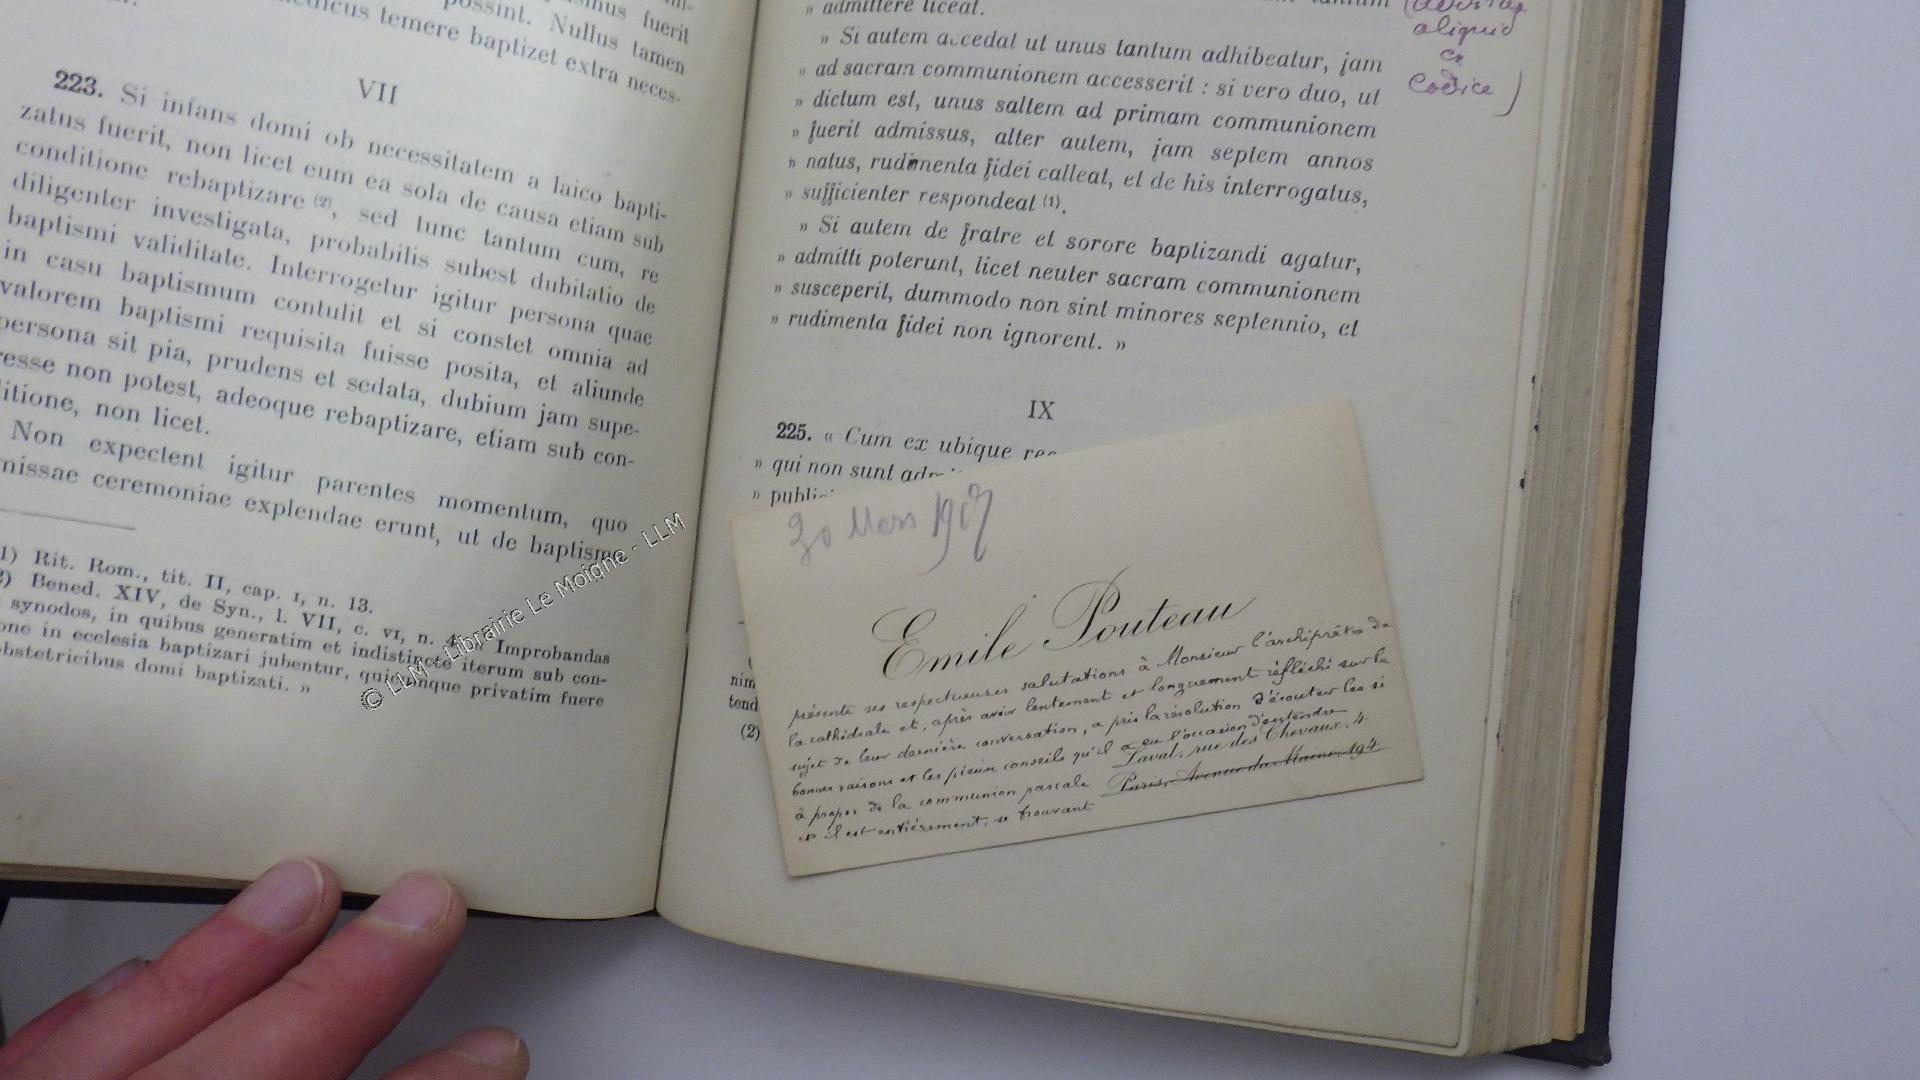 possint. Nullus tamen
medicus temere baptizet extra neces-
VII
223. Si infans domi ob necessitatem a laico bapti-
zatus fuerit, non licet eum ea sola de causa etiam sub
conditione rebaptizare (2), sed tunc tantum cum, re
diligenter investigata, probabilis subest dubitatio de
baptismi validitate. Interrogetur igitur persona quae
in casu baptismum contulit et si constet omnia ad
valorem baptismi requisita fuisse posita, et aliunde
persona sit pia, prudens et sedata, dubium jam supe-
resse non potest, adeoque rebaptizare, etiam sub con-
ditione, non licet.
Non expectent igitur parentes momentum, quo
missae ceremoniae explendae erunt, ut de baptismo
1) Rit. Rom., tit. II, cap. I, n. 13.
2) Bened. XIV, de Syn., l. VII, c. VI, n. Improbandas
synodos, in quibus generatim et indistincte iterum sub con-
one in ecclesia baptizari jubentur, quicunque privatim fuere
obstetricibus domi baptizati. »
» admittere liceat.
» Si autem accedat ut unus tantum adhibeatur, jam
» ad sacram communionem accesserit : si vero duo, ut
» dictum est, unus saltem ad primam communionem
» fuerit admissus, alter autem, jam septem annos
» natus, rudimenta fidei calleat, et de his interrogatus,
» sufficienter respondeat (1).
» Si autem de fratre et sorore baptizandi agatur,
» admitti poterunt, licet neuter sacram communionem
» susceperit, dummodo non sint minores septennio, et
» rudimenta fidei non ignorent. »
aliquid
ex
Codice )
IX
225. « Cum ex ubique rec
» qui non sunt adm
» publi
nim
tend
(2)
30 Mars 190
Emile Pouteau
présente ses respectueuses salutations à Monsieur l'archiprêtre de
la cathédrale et, après avoir lentement et longuement réfléchi sur le
sujet de leur dernière conversation, a pris la résolution d'écouter les si
bonnes raisons et les pieux conseils qu'il a eu l'occasion d'entendre
à propos de la communion pascale
Laval, rue des Chevaux, 4
Paris, Avenue du Maine, 194
il est entièrement, se trouvant
© LLM - Librairie Le Moigne - LLM